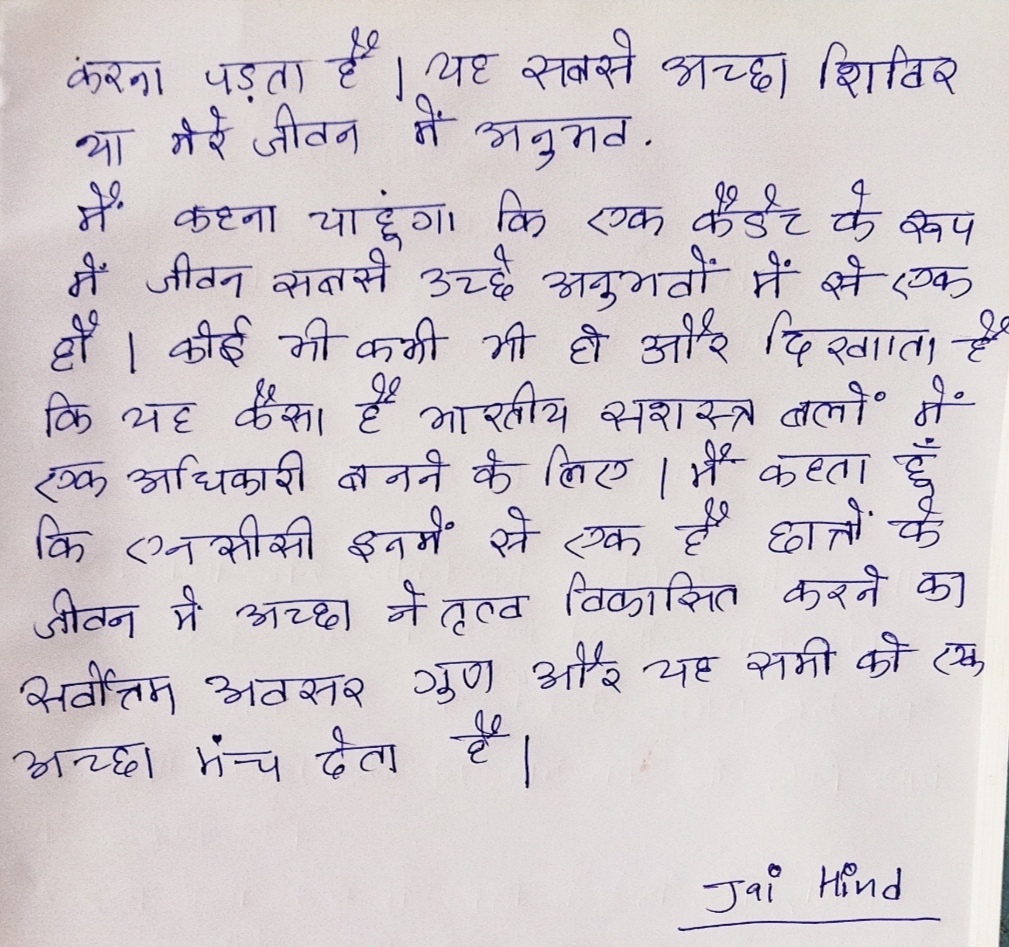 करना पड़ता है | यह सबसे अच्छा शिविर
था मेरे जीवन में अनुभव.
मैं कहना चाहूंगा कि एक कैडेट के रूप
में जीवन सबसे उच्छे अनुभवों में से एक
हौ | कोई भी कभी भी हो और दिखााता है
कि यह कैसा है भारतीय सशस्त्र बलों में
एक अधिकारी बनने के लिए | मैं कहता हूँ
कि एनसीसी इनमें से एक है छात्रों के
जीवन मे अच्छा नेतृत्व विकासित करने का
सर्वोत्तम अवसर गुण और यह सभी को एक
अच्छा मंच देता है |
Jai Hind